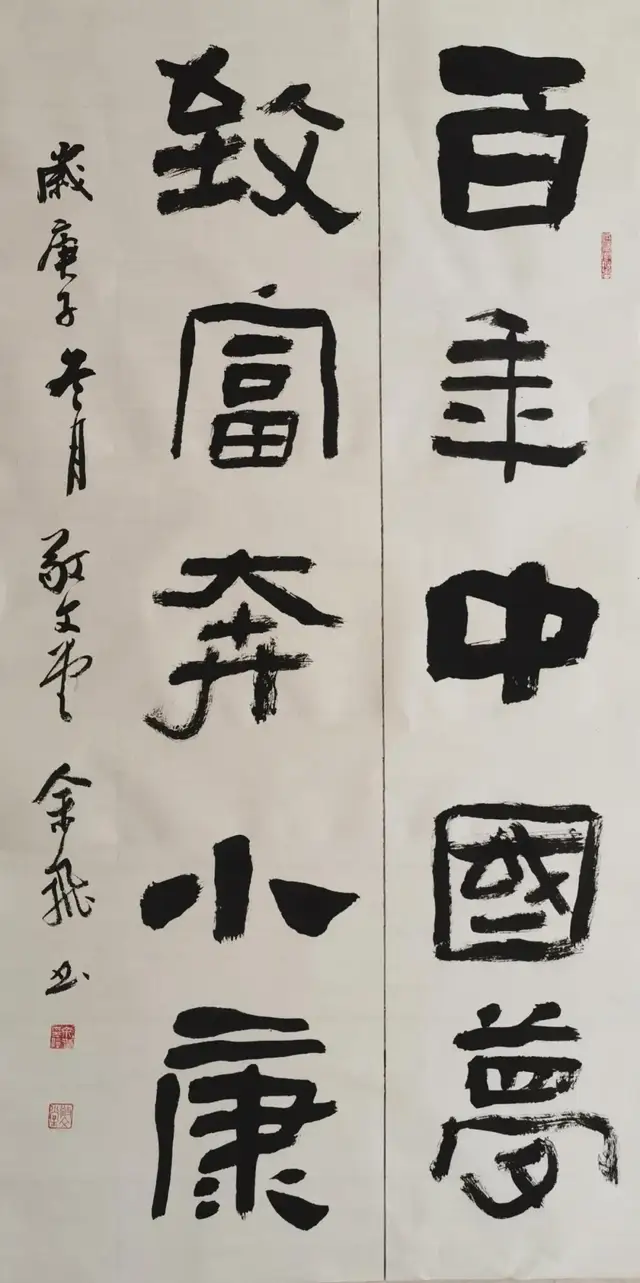 百年中國夢
致富奔小康
歲庚子冬月敬文堂余飛书